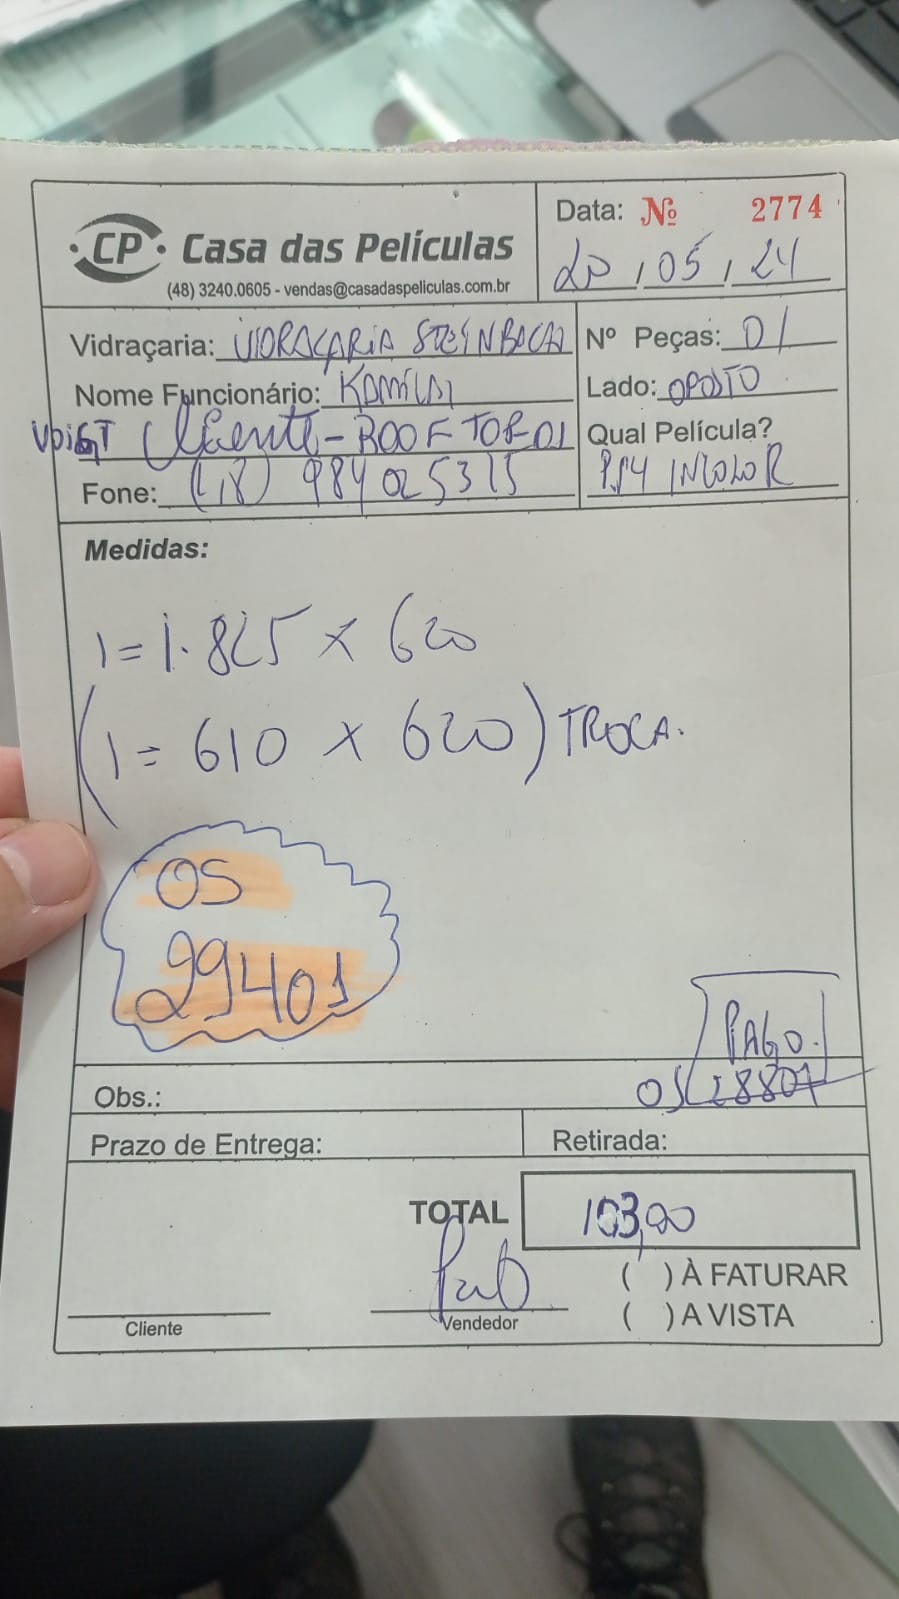 CP Casa das Películas
(48) 3240.0605 - vendas@casadaspeliculas.com.br
Data: Nº 2774
20, 05, 24
Vidraçaria: VIDRAÇARIA STEINBACH
Nº Peças: 01
Nome Funcionário: KAMILA
Lado: OPOSTO
Cliente - ROOFTOP 01
Qual Película?
Fone: (48) 984025315
PS4 INCOLOR
Medidas:
1 = 1.825 x 620
(1 = 610 x 620) TROCA.
OS
29401
PAGO.
OS 28807
Obs.:
Prazo de Entrega:
Retirada:
TOTAL 103,00
( ) À FATURAR
( ) A VISTA
Cliente
Vendedor